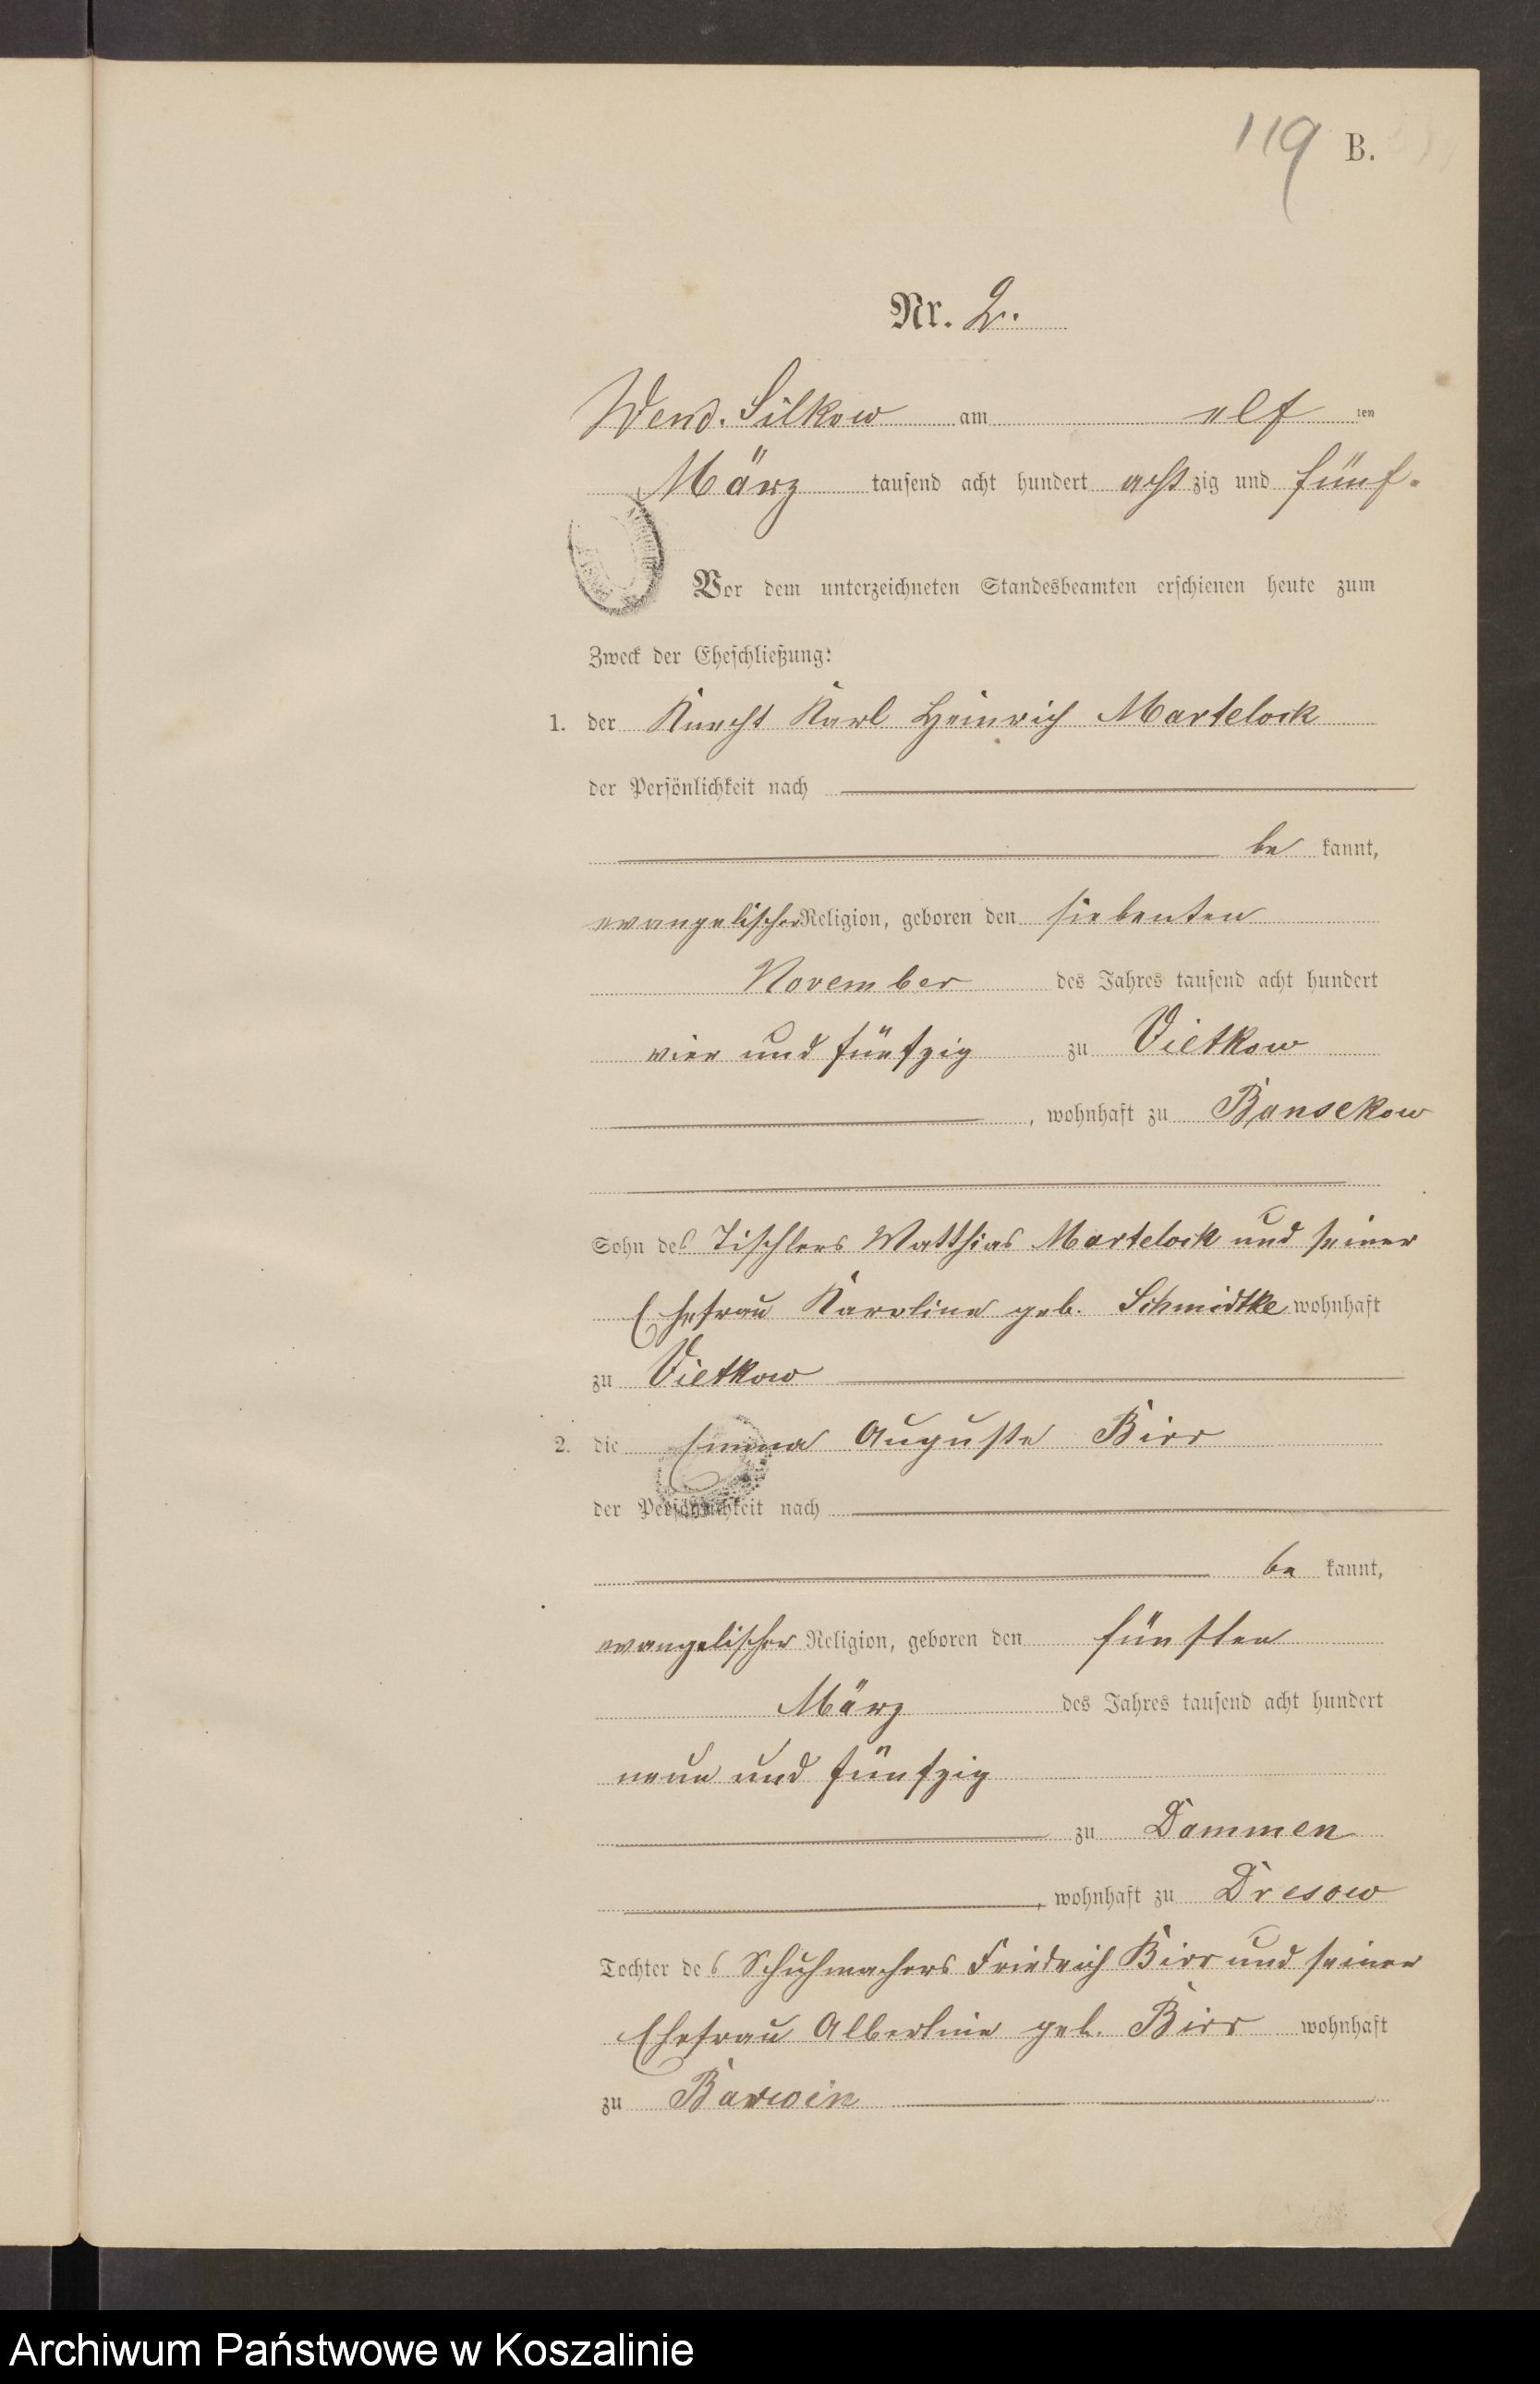 119 B.
Nr. 2.
Wend. Silkow am elf ten
März tausend acht hundert achtzig und fünf.
Vor dem unterzeichneten Standesbeamten erschienen heute zum
Zweck der Eheschließung:
1. der Knecht Karl Heinrich Martelock
der Persönlichkeit nach
be kannt,
evangelischer Religion, geboren den siebenten
November des Jahres tausend acht hundert
vier und fünfzig zu Vietkow
, wohnhaft zu Bansekow
Sohn des Tischlers Matthias Martelock und seiner
Ehefrau Karoline geb. Schmidtke wohnhaft
zu Vietkow
2. die Emma Auguste Birr
der Persönlichkeit nach
be kannt,
evangelischer Religion, geboren den fünften
März des Jahres tausend acht hundert
neun und fünfzig
zu Dammen
, wohnhaft zu Dresow
Tochter des Schuhmachers Friedrich Birr und seiner
Ehefrau Albertine geb. Birr wohnhaft
zu Barwin
Archiwum Państwowe w Koszalinie